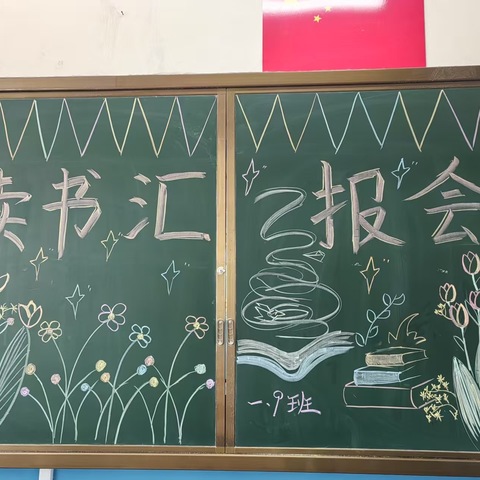 读书汇报会
一.9班